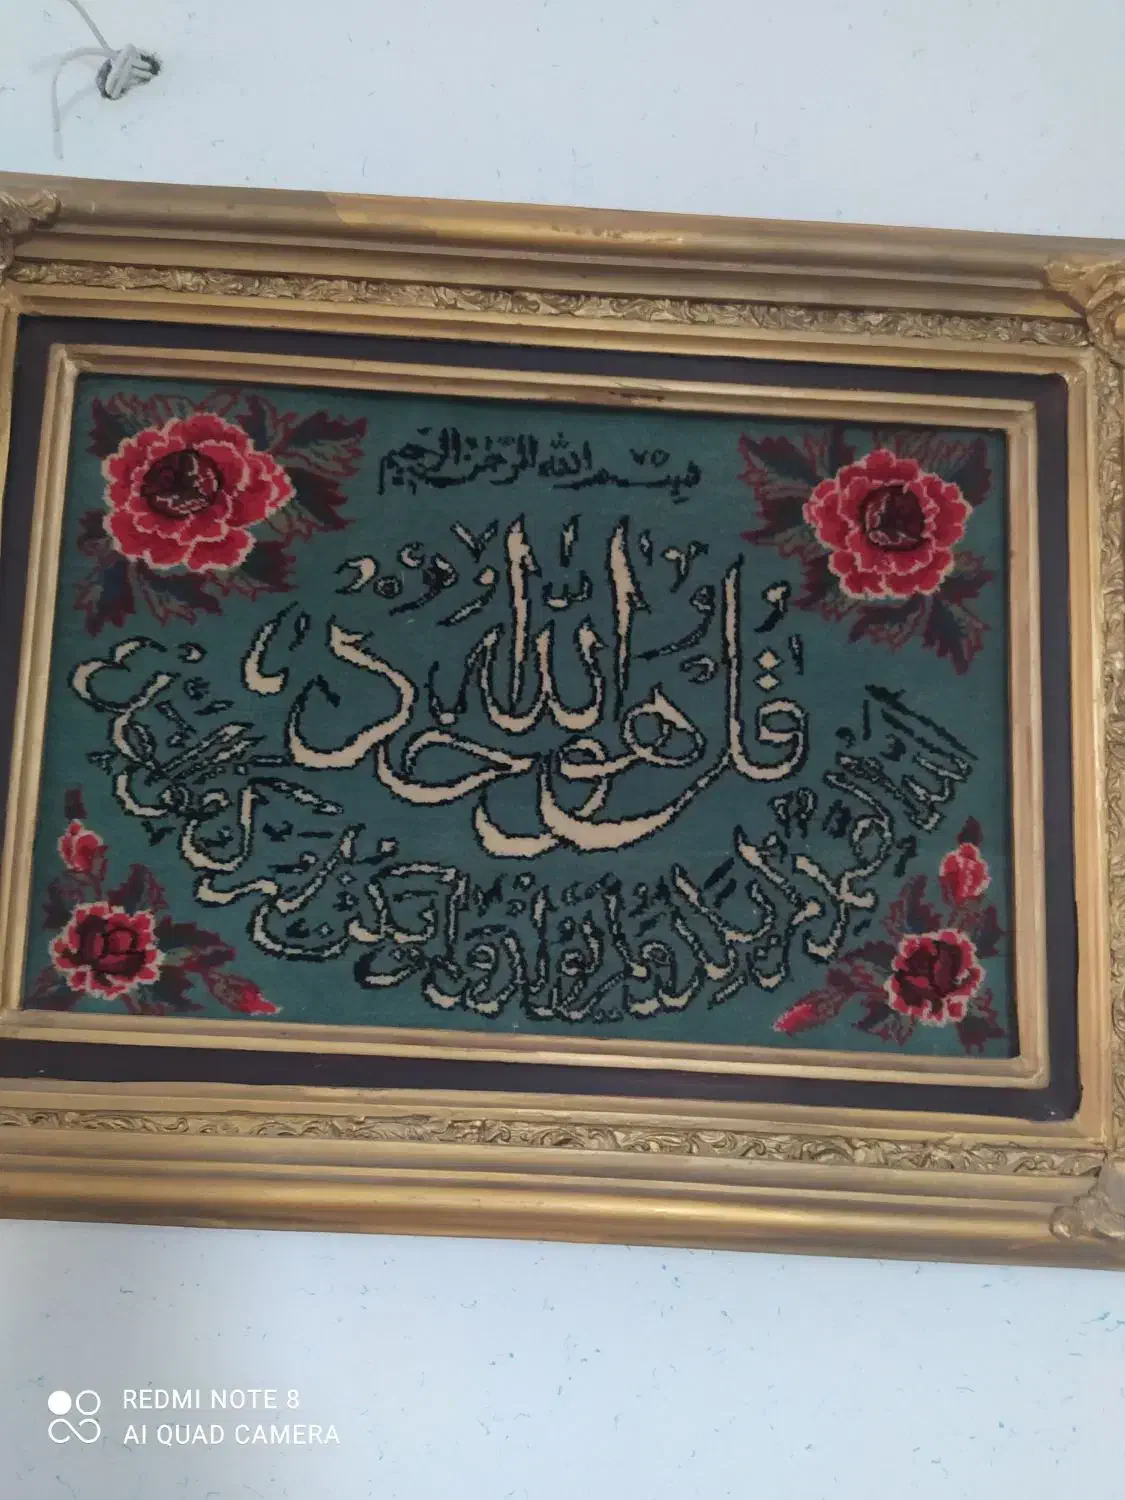 بسم الله الرحمن الرحيم
٧٥
قُلْ هُوَ اللَّهُ أَحَدٌ
الله الصمد لم يلد ولم يولد ولم يكن له كفوا أحد
REDMI NOTE 8
AI QUAD CAMERA